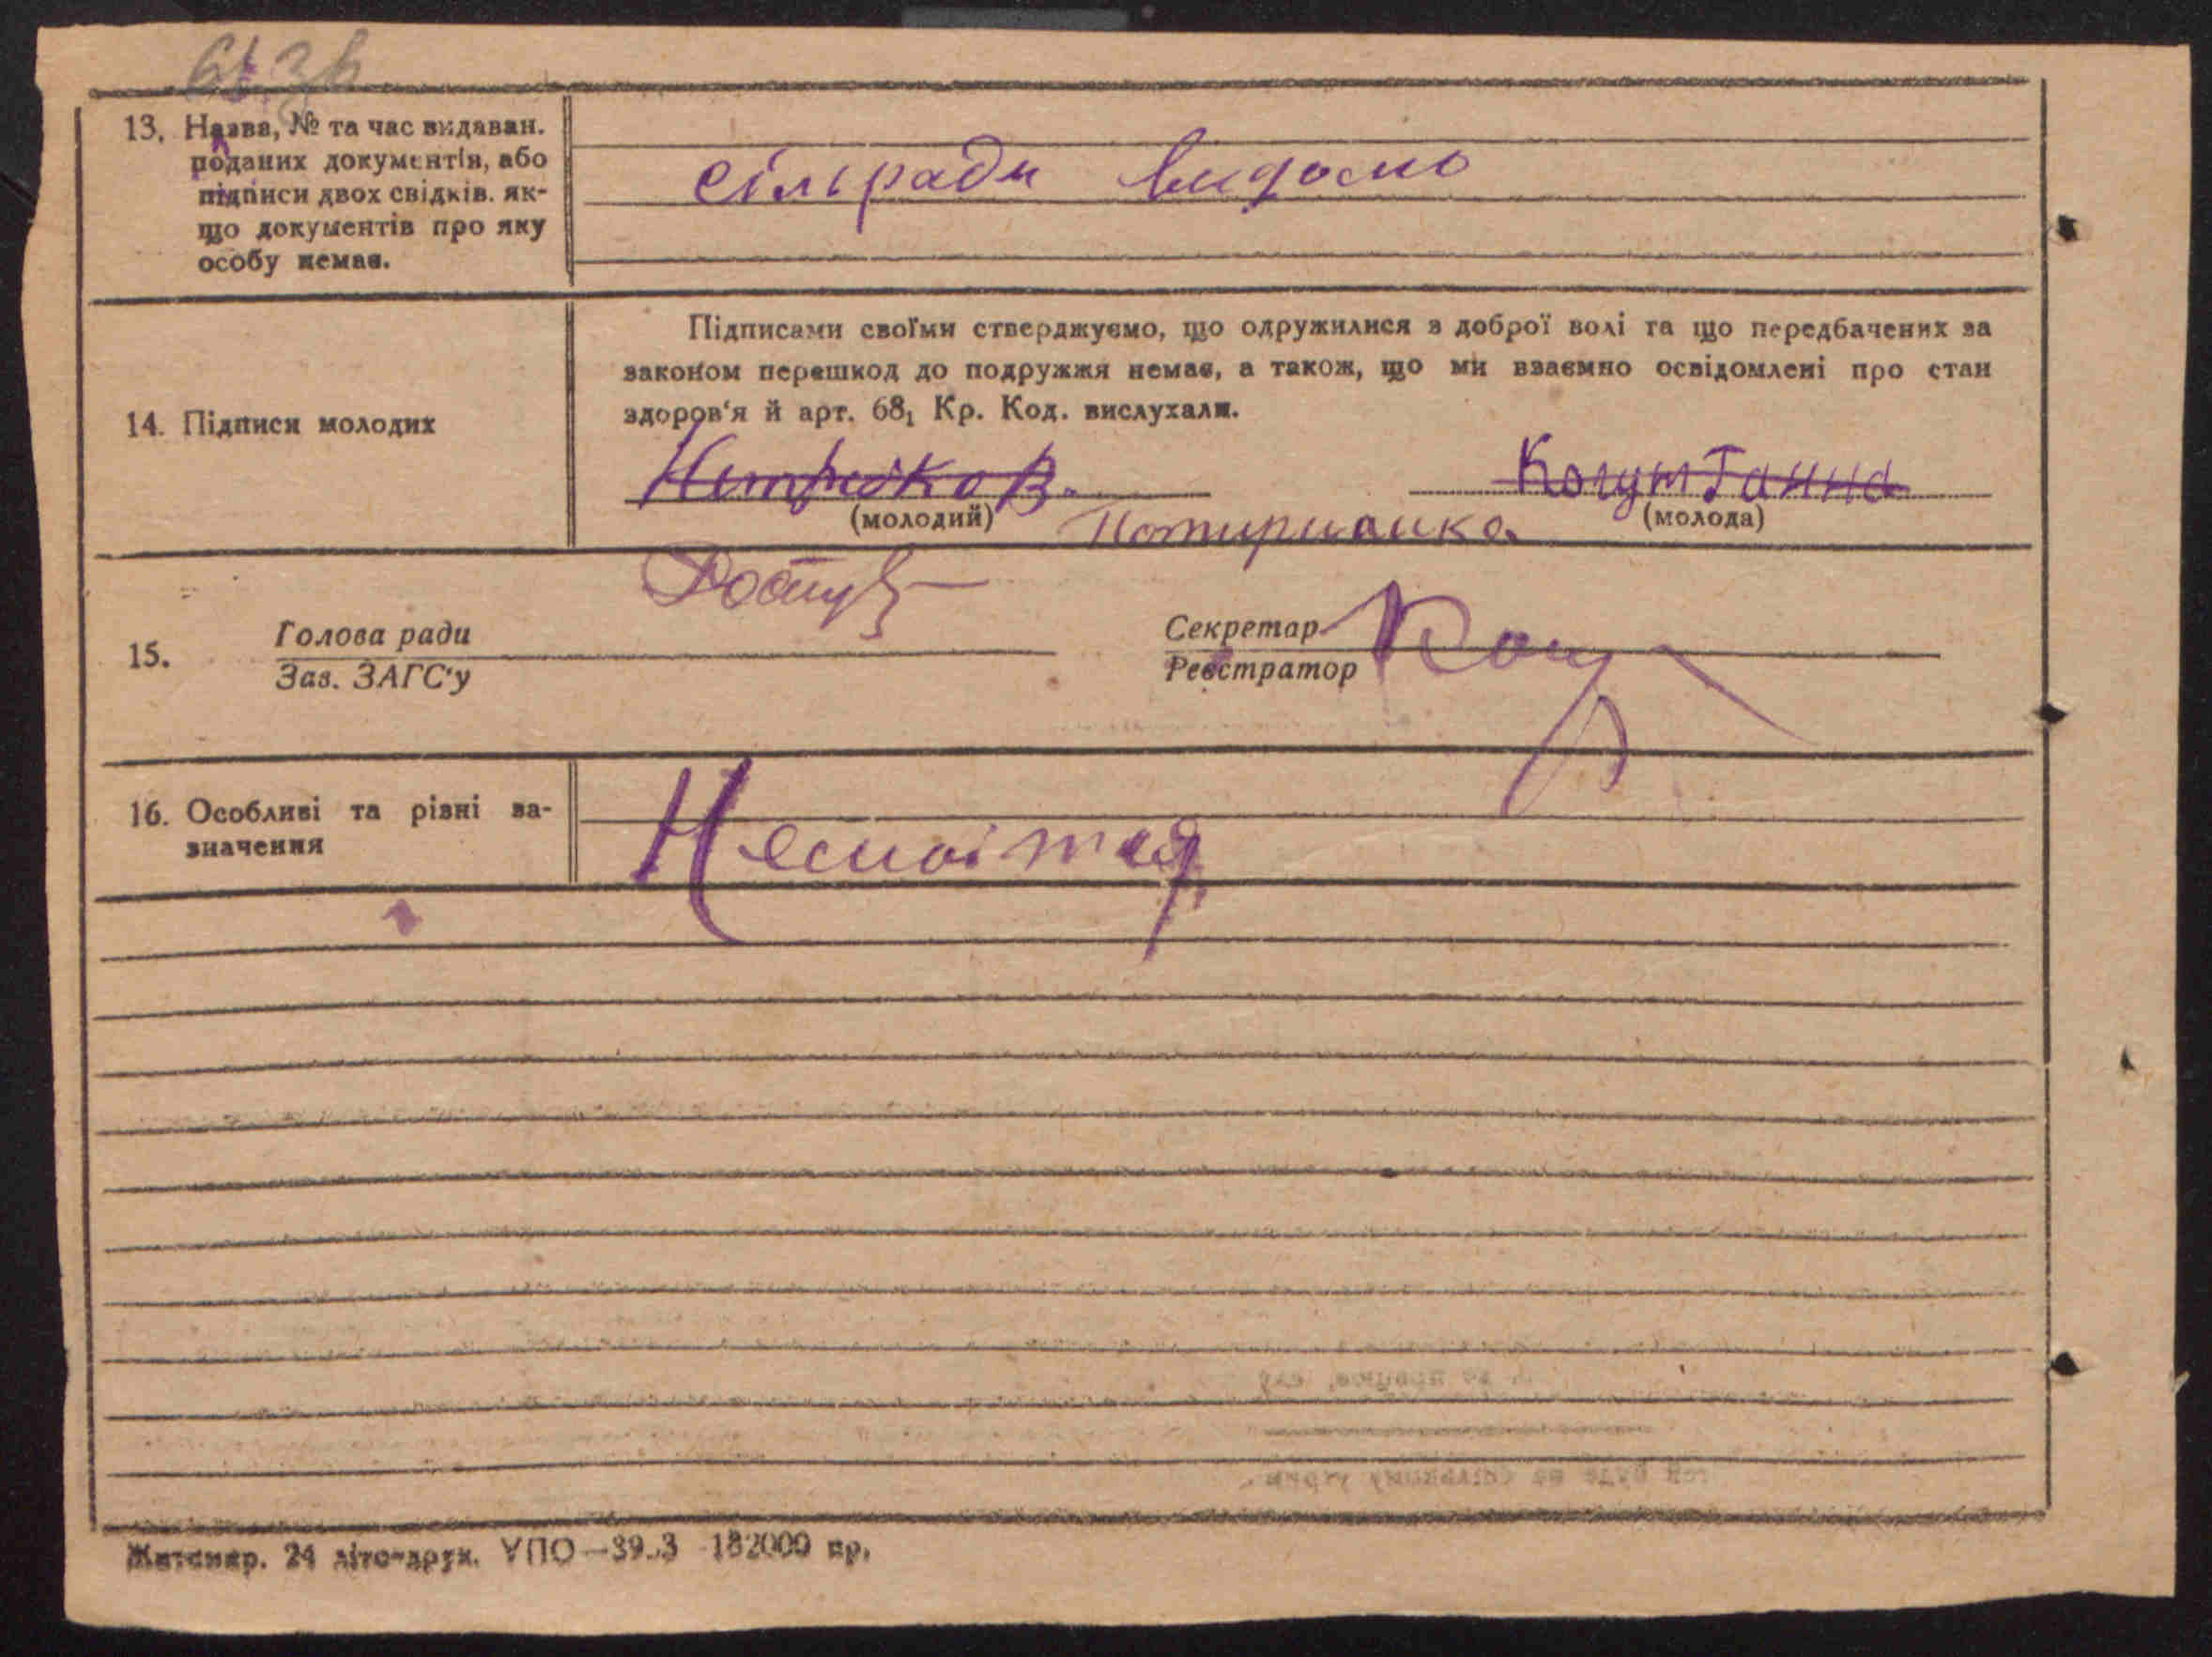 13. Назва, № та час видаван.
поданих документів, або
підписи двох свідків. як-
що документів про яку
особу немає.
сільради видомо
14. Підписи молодих
Підписами своїми стверджуємо, що одружилися з доброї волі та що передбачених за
законом перешкод до подружжя немає, а також, що ми взаємно освідомлені про стан
здоров'я й арт. 68₁ Кр. Код. вислухали.
В.
Когут Ганна
(молодий)
(молода)
15.
Голова ради
Зав. ЗАГС'у
Секретар
Реєстратор
16. Особливі та різні за-
значення
Житомир. 24 літо-друк. УПО—
182000 пр.